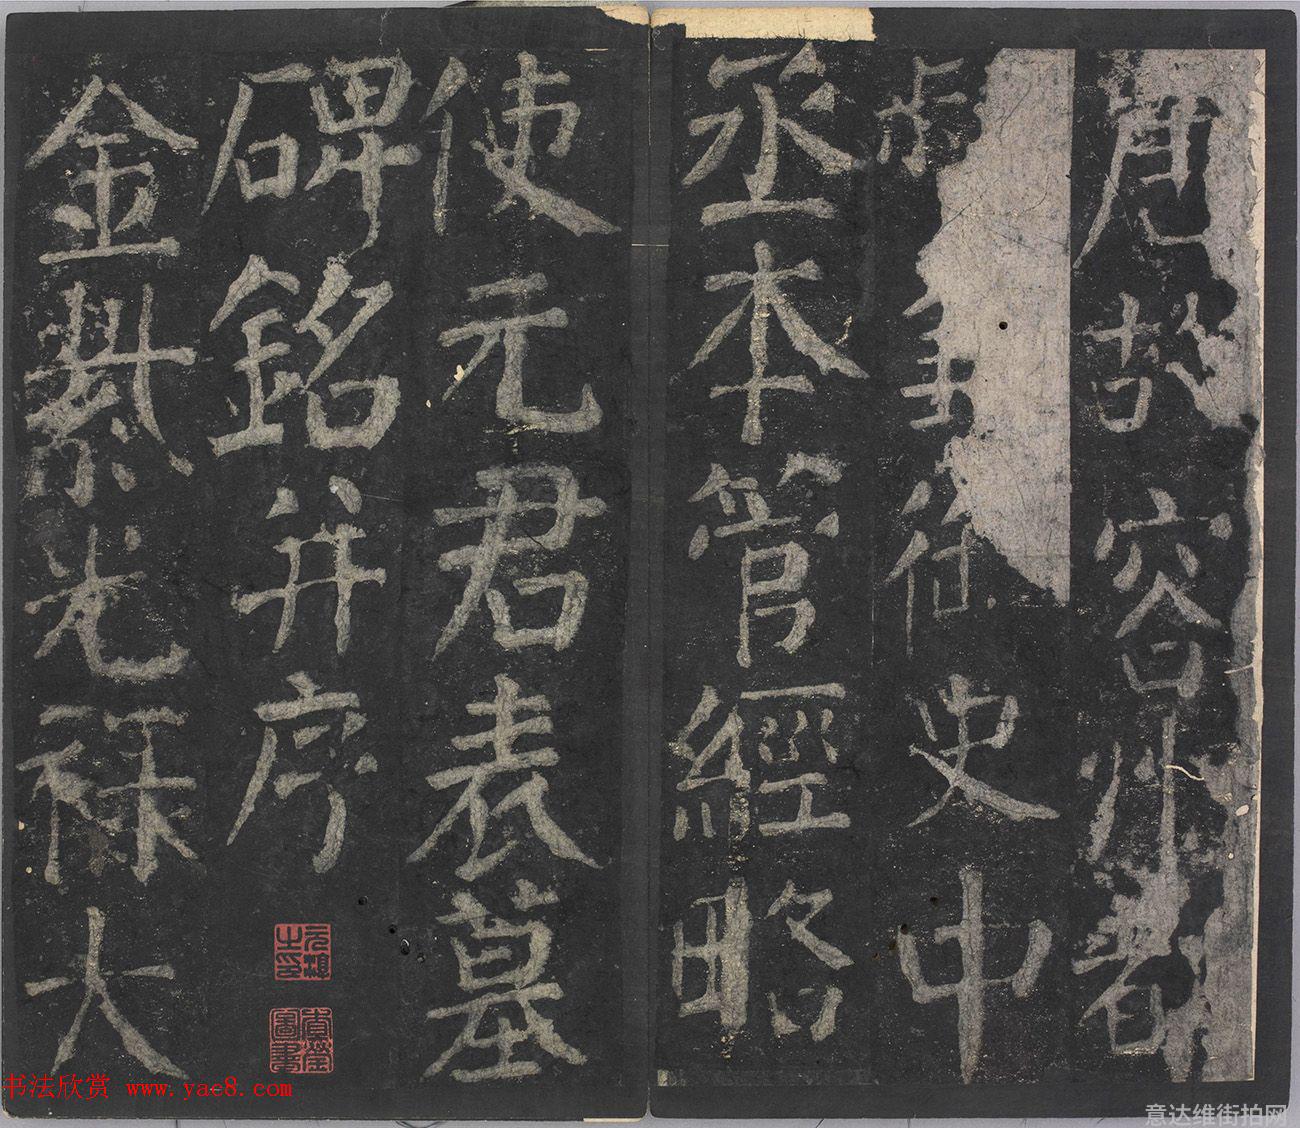 唐故容州都
史中
丞本管經略
使元君表墓
碑銘并序
金紫光祿大
书法欣赏 www.yac8.com
意达维街拍网